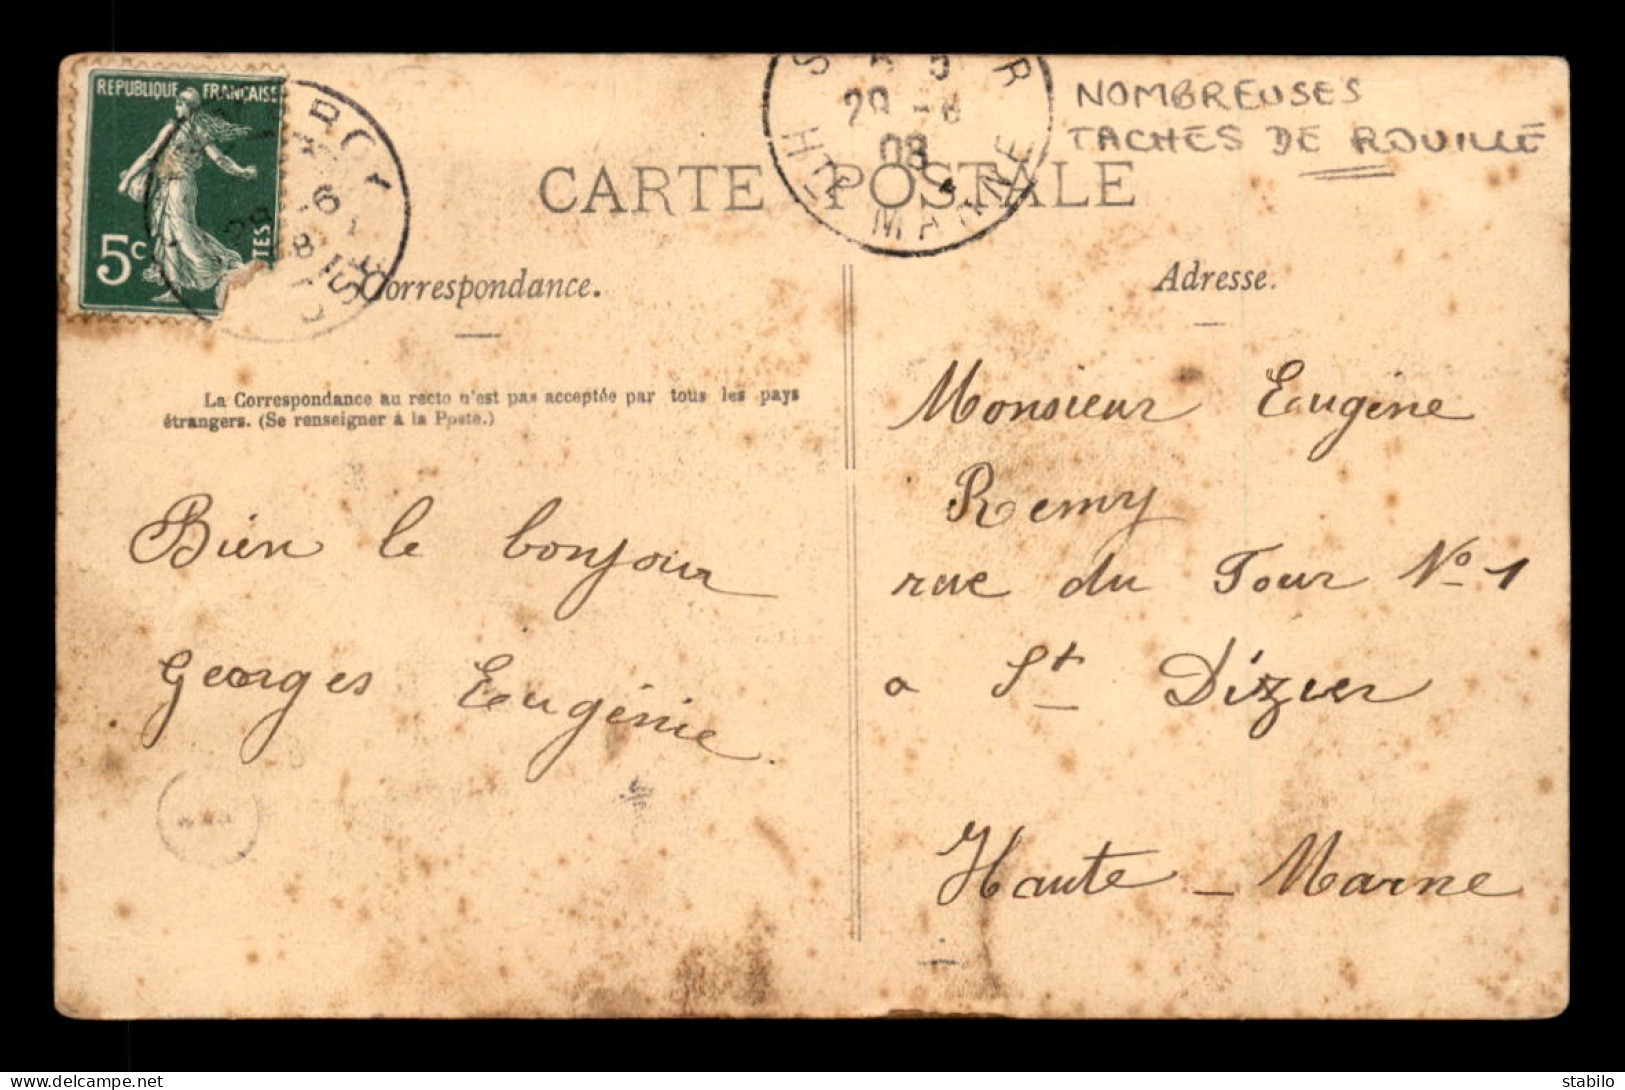 REPUBLIQUE FRANÇAISE
5c
TES
29 -6
08
HTE MARNE
NOMBREUSES
TACHES DE ROUILLE
CARTE POSTALE
Correspondance.
Adresse.
La Correspondance au recto n'est pas acceptée par tous les pays
étrangers. (Se renseigner à la Poste.)
Bien le bonjour
Georges Eugénie
Monsieur Eugéne
Remy
rue du Tour No 1
a St Dizier
Haute - Marne
delcampe.net
stabilo